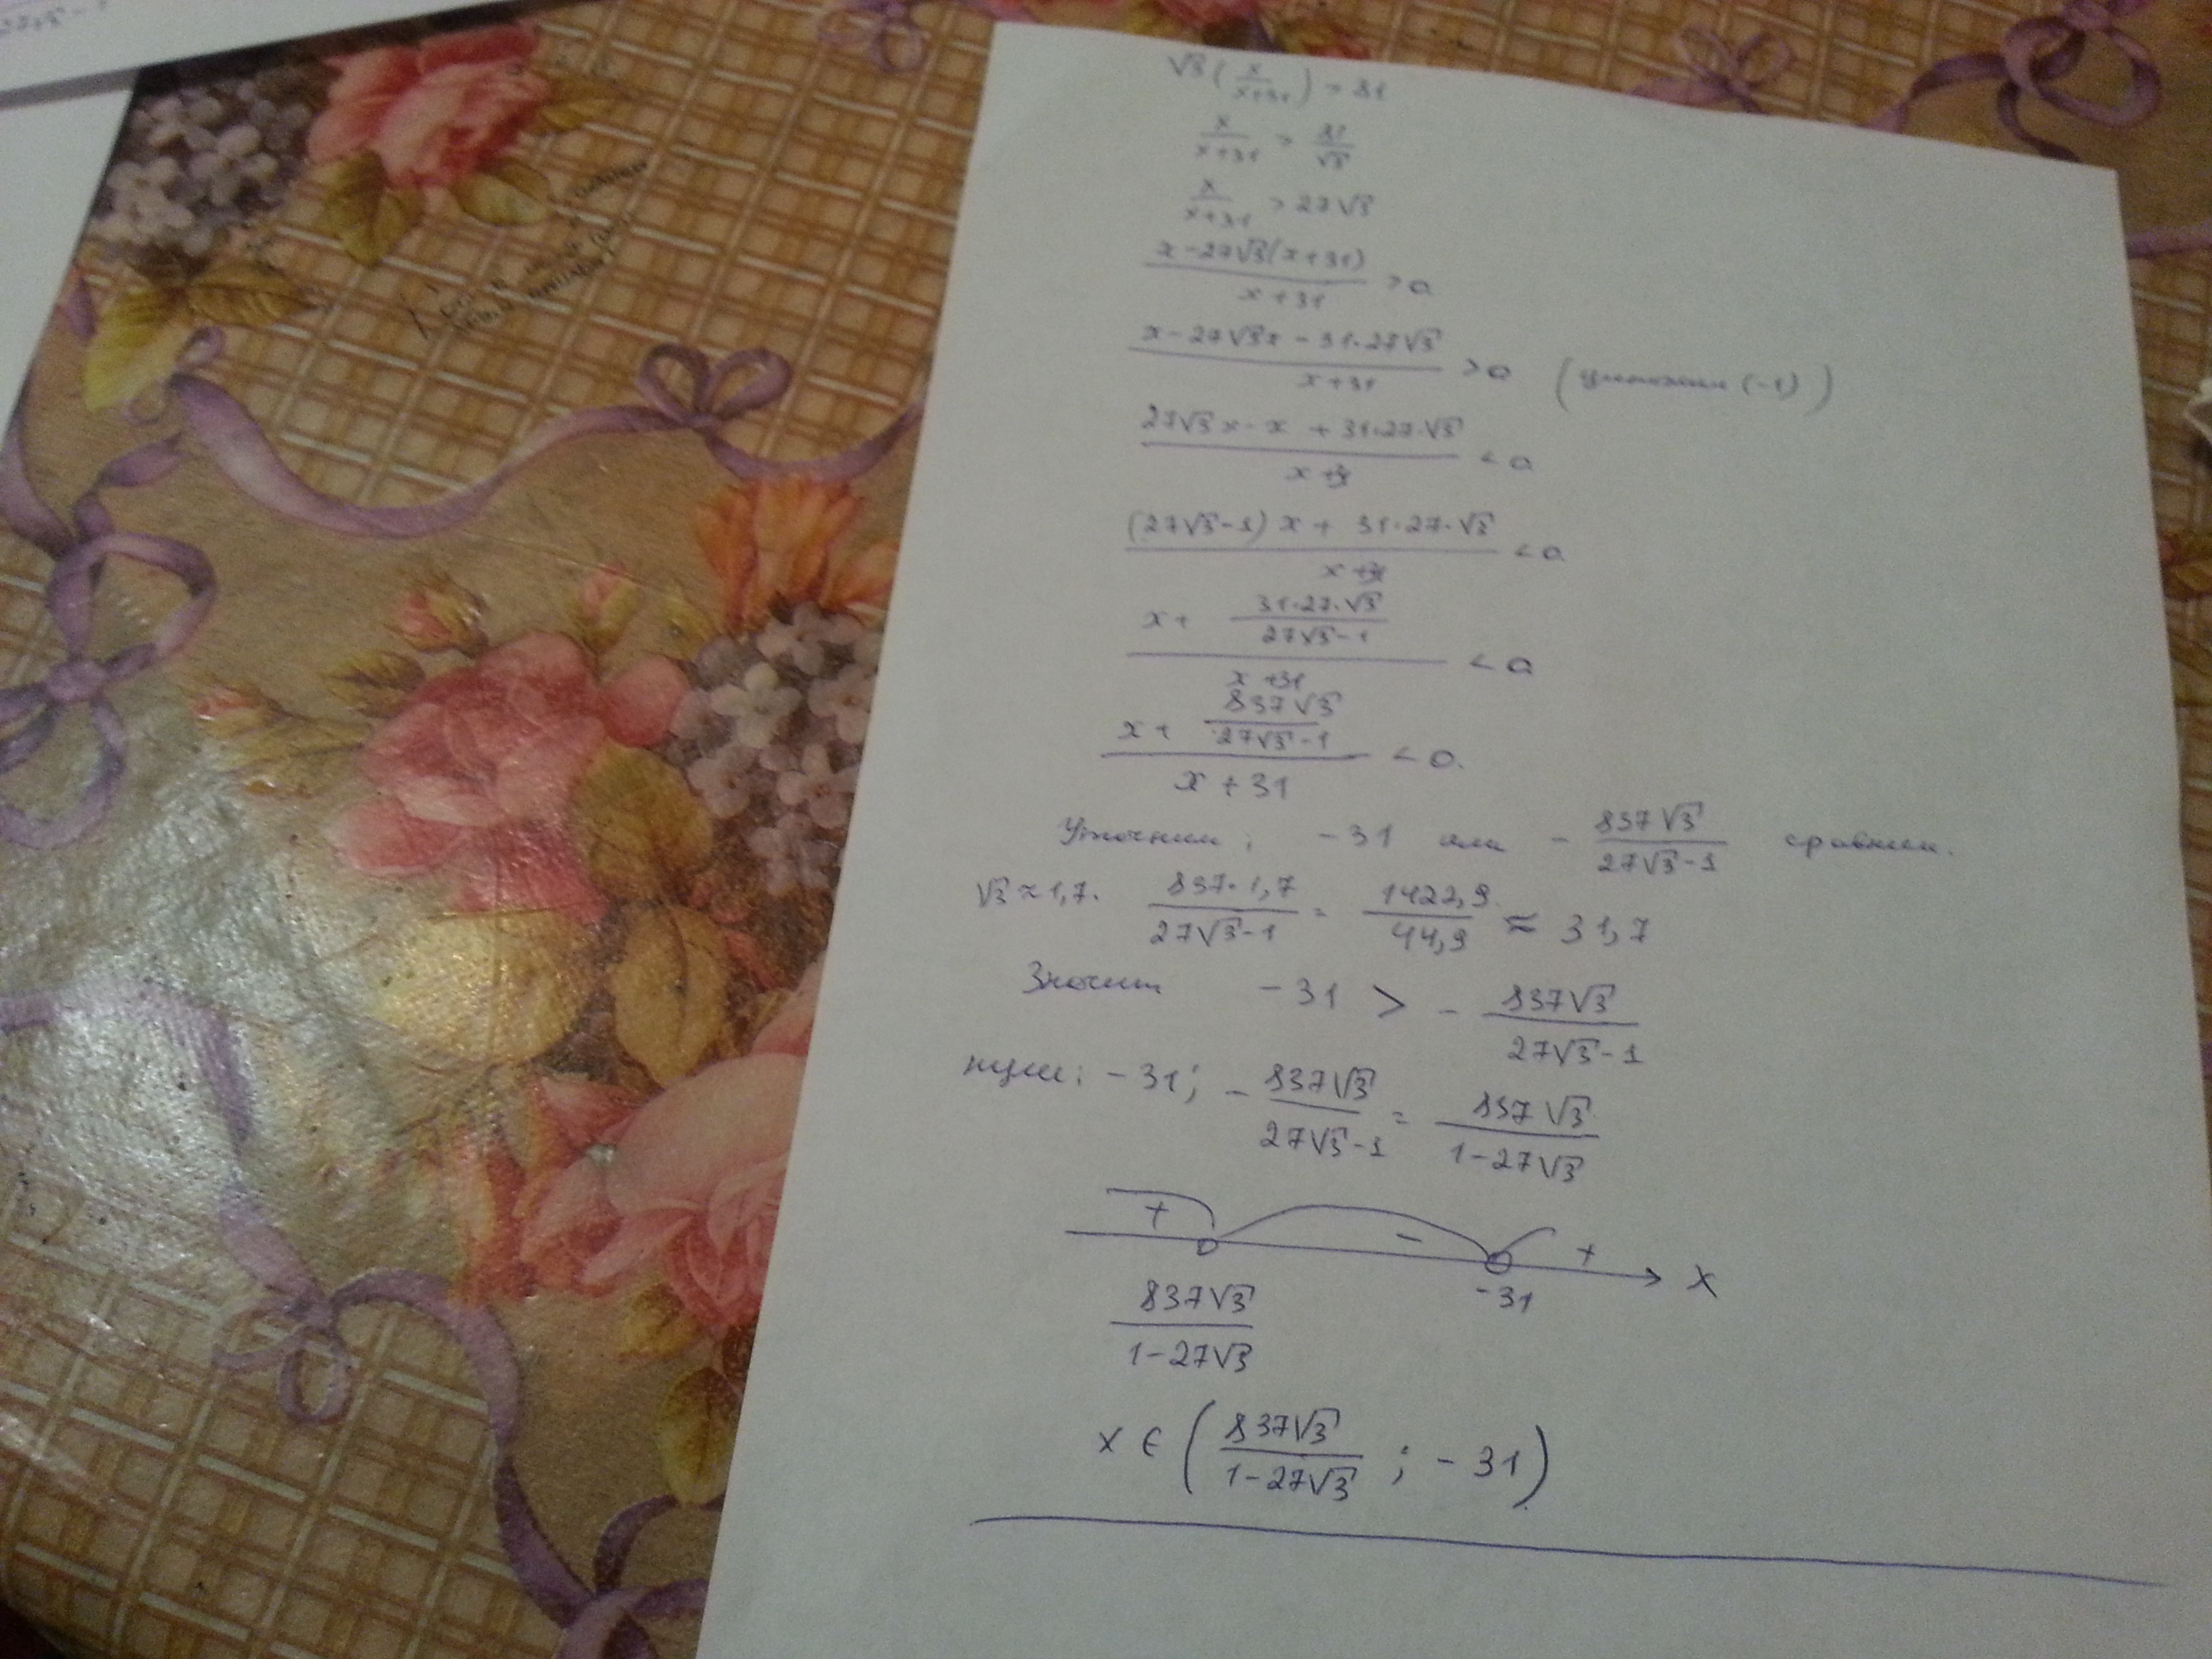 √3 (x/(x+31)) > 81
x/(x+31) > 81/√3
x/(x+31) > 27√3
(x-27√3(x+31))/(x+31) > 0
(x-27√3x-31·27√3)/(x+31) > 0 (умножим (-1))
(27√3x-x + 31·27·√3)/(x+31) < 0
((27√3-1)x + 31·27·√3)/(x+31) < 0
(x + (31·27·√3)/(27√3-1))/(x+31) < 0
(x + (837√3)/(27√3-1))/(x+31) < 0.
Уточним: -31 или -(837√3)/(27√3-1) сравним.
√3≈1,7. (837·1,7)/(27√3-1) = 1422,9/44,9 ≈ 31,7
Значит -31 > -(837√3)/(27√3-1)
нули: -31; -(837√3)/(27√3-1) = (837√3)/(1-27√3)
+ - + x
(837√3)/(1-27√3) -31
x ∈ ((837√3)/(1-27√3); -31)